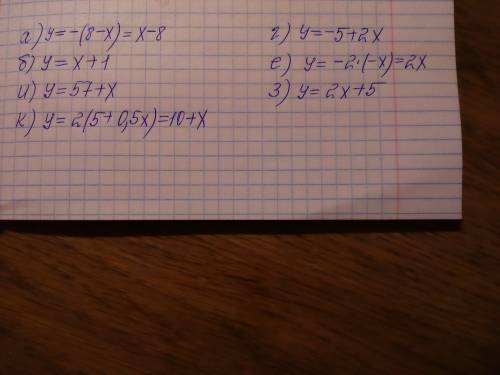 а) y=-(8-x)=x-8
б) y=x+1
и) y=57+x
к) y=2(5+0,5x)=10+x
г) y=-5+2x
е) y=-2·(-x)=2x
з) y=2x+5